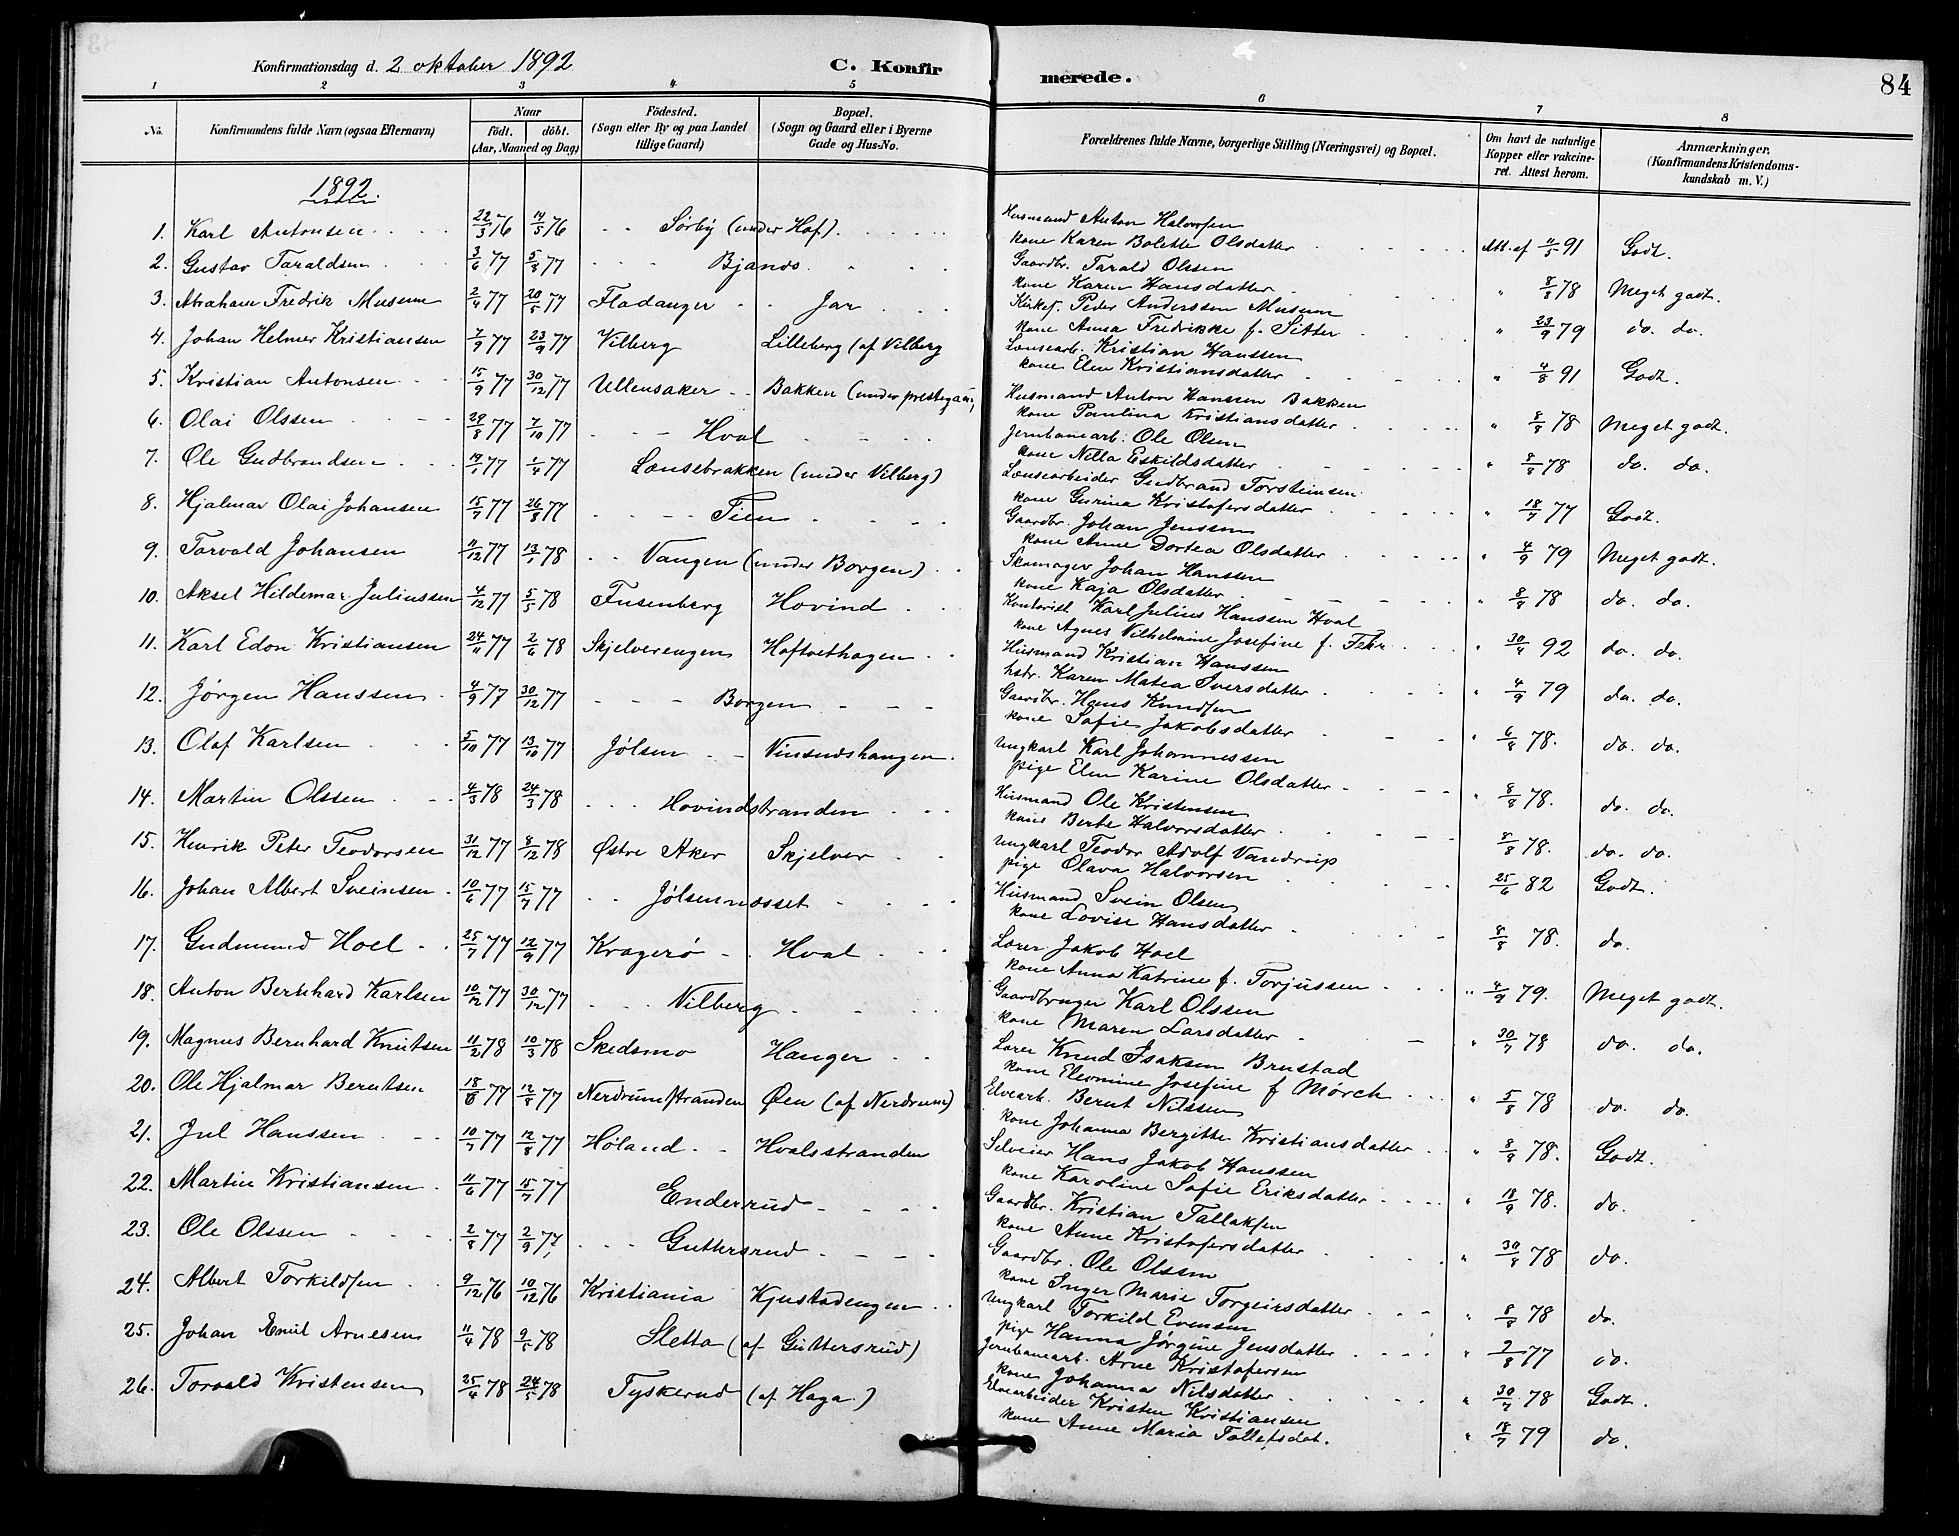 84
Konfirmationsdag d. 2 oktober 1892
C. Konfirmerede.
1 2 3 4 5 6 7 8
No. Konfirmandens fulde Navn (ogsaa Efternavn) Naar födt. döbt. (Aar, Maaned og Dag) Födested. (Sogn eller By og paa Landet tillige Gaard) Bopæl. (Sogn og Gaard eller i Byerne Gade og Hus-No. Forældrenes fulde Navne, borgerlige Stilling (Næringsvei) og Bopæl. Om havt de naturlige Kopper eller vakcineret. Attest herom. Anmærkninger. (Konfirmandens Kristendomskundskab m. V.)
1892.
1. Karl Antonsen 22/3 76 14/5 76 Sørby (under Hof) Husmand Anton Halvorsen
kone Karen Bolette Olsdatter Att. af 11/5 91 Godt.
2. Gustav Taraldsen 3/6 77 5/8 77 Bjanes Gaardbr. Tarald Olssen
kone Karen Hansdatter " 8/8 78 Meget godt.
3. Abraham Fredrik Museum 2/4 77 20/5 77 Fladanger Jar Kirkes. Peder Anderssen Museum
kone Anna Fredrikke f. Sitter " 23/9 79 do. do.
4. Johan Helmer Kristiansen 7/9 77 23/9 77 Vilberg Lilleberg (af Vilberg Lænsearb. Kristian Hanssen
kone Elen Kristiansdatter " 4/8 91 Godt.
5. Kristian Antonsen 15/9 77 30/12 77 Ullensaker Bakken (under prestegaard) Husmand Anton Hanssen Bakken
kone Paulina Kristiansdatter " 8/8 78 Meget godt.
6. Olai Olssen 28/8 77 7/10 77 Hval Jernbanearb. Ole Olsen
kone Nilla Eskildsdatter " 8/8 78 do. do.
7. Ole Gudbrandsen 14/1 77 1/4 77 Lænsebrakken (under Vilberg) Lænsearbeider Gudbrand Torsteinsen
kone Gurina Kristofersdatter " 18/7 77 Godt.
8. Hjalmar Olai Johansen 15/7 77 26/8 77 Tien Gaardbr. Johan Jenssen
kone Anne Dortea Olsdatter " 4/9 79 Meget godt.
9. Torvald Johansen 11/12 77 13/1 78 Vangen (under Borgen) Skomager Johan Hanssen
kone Kaja Olsdatter " 8/8 78 do. do.
10. Aksel Hildemar Juliussen 4/12 77 5/5 78 Fusenberg Hovind Kontorist Karl Julius Hanssen Hval
kone Agnes Vilhelmine Josefine f. Fehr " 30/4 92 do. do.
11. Karl Edon Kristiansen 24/11 77 2/6 78 Skjelverengen Hoftvethagen Husmand Kristian Hanssen
hstr. Karen Matea Iversdatter " 4/9 79 do. do.
12. Jørgen Hanssen 4/9 77 30/12 77 Borgen Gaardbr. Hans Knudsen
kone Sofie Jakobsdatter " 6/8 78. do. do.
13. Olaf Karlsen 5/10 77 13/10 77 Jølsen Vinsneshangen Ungkarl Karl Johannessen
pige Elen Karine Olsdatter " 8/8 78. do. do.
14. Martin Olssen 4/3 78 24/3 78 Hovindstranden Husmand Ole Kristensen
kone Berte Halvorsdatter 8/8 78. do. do.
15. Henrik Peter Teodorsen 31/12 77 8/12 78 Østre Aker Skjelver Ungkarl Teodor Adolf Vandrup
pige Olava Halvorsen 25/6 82 Godt.
16. Johan Albert Sveinsen 10/6 77 15/7 77 Jølsennæsset Husmand Svein Olsen
kone Lovise Hansdatter 8/8 78. do.
17. Gudmund Hoel 25/7 77 12/9 77 Kragerø Hval Lærer Jakob Hoel
kone Anna Katrine f. Torjussen " 4/9 79. Meget godt.
18. Anton Bernhard Karlsen 10/12 77 30/12 77 Vilberg Gaardbruger Karl Olssen
kone Maren Larsdatter " 30/7 78 do. do.
19. Magnus Bernhard Knutsen 11/2 78 10/3 78 Skedsmo Hanger Lærer Knud Isaksen Brustad
kone Eleonine Josefine f Mørch " 5/8 78 do. do.
20. Ole Hjalmar Berntsen 18/6 77 12/8 77 Nerdrumstranden Øen (af Nerdrum) Elvearb. Bernt Nilssen
kone Johanna Bergitte Kristiansdatter " 8/8 78. Godt.
21. Jul Hanssen 10/7 77 12/8 77 Høland Hvalsstranden Selveier Hans Jakob Hanssen
kone Karoline Sofie Eriksdatter " 18/9 78. do.
22. Martin Kristiansen 11/6 77 15/7 77 Enderrud Gaardbr. Kristian Tallaksen
kone Anne Kristofersdatter " 30/8 78 do.
23. Ole Olssen 2/8 77 2/9 77 Guttersrud Gaardbr. Ole Olssen
kone Inger Marie Torgeirsdatter " 8/8 78 do.
24. Albert Torkildsen 9/12 76 10/12 76 Kristiania Kjustadengen Ungkarl Torkild Evensen
pige Hanna Jørgine Jensdatter " 7/8 77 do.
25. Johan Emil Arnesen 11/4 78 9/5 78 Sletta (af Guttersrud) Jernbanearb. Arne Kristofersen
kone Johanna Nilsdatter " 30/7 78 Godt.
26. Torvald Kristensen 25/4 78 24/5 78 Tyskerud (af Haga) Elvearbeider Kristen Kristiansen
kone Anne Maria Tollefsdat. " 18/7 79 do.